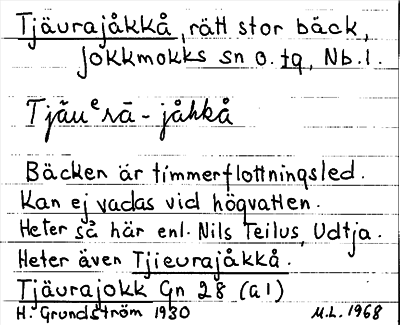 Tjäurajåkkå, rätt stor bäck,
Jokkmokks sn o. tg, Nb. l.
Tjäuᵉrā - jåhkå
Bäcken är timmerflottningsled.
Kan ej vadas vid högvatten.
Heter så här enl. Nils Teilus, Udtja.
Heter även Tjieurajåkkå.
Tjäurajokk Gn 28 (a1)
H. Grundström 1930 M.L. 1968